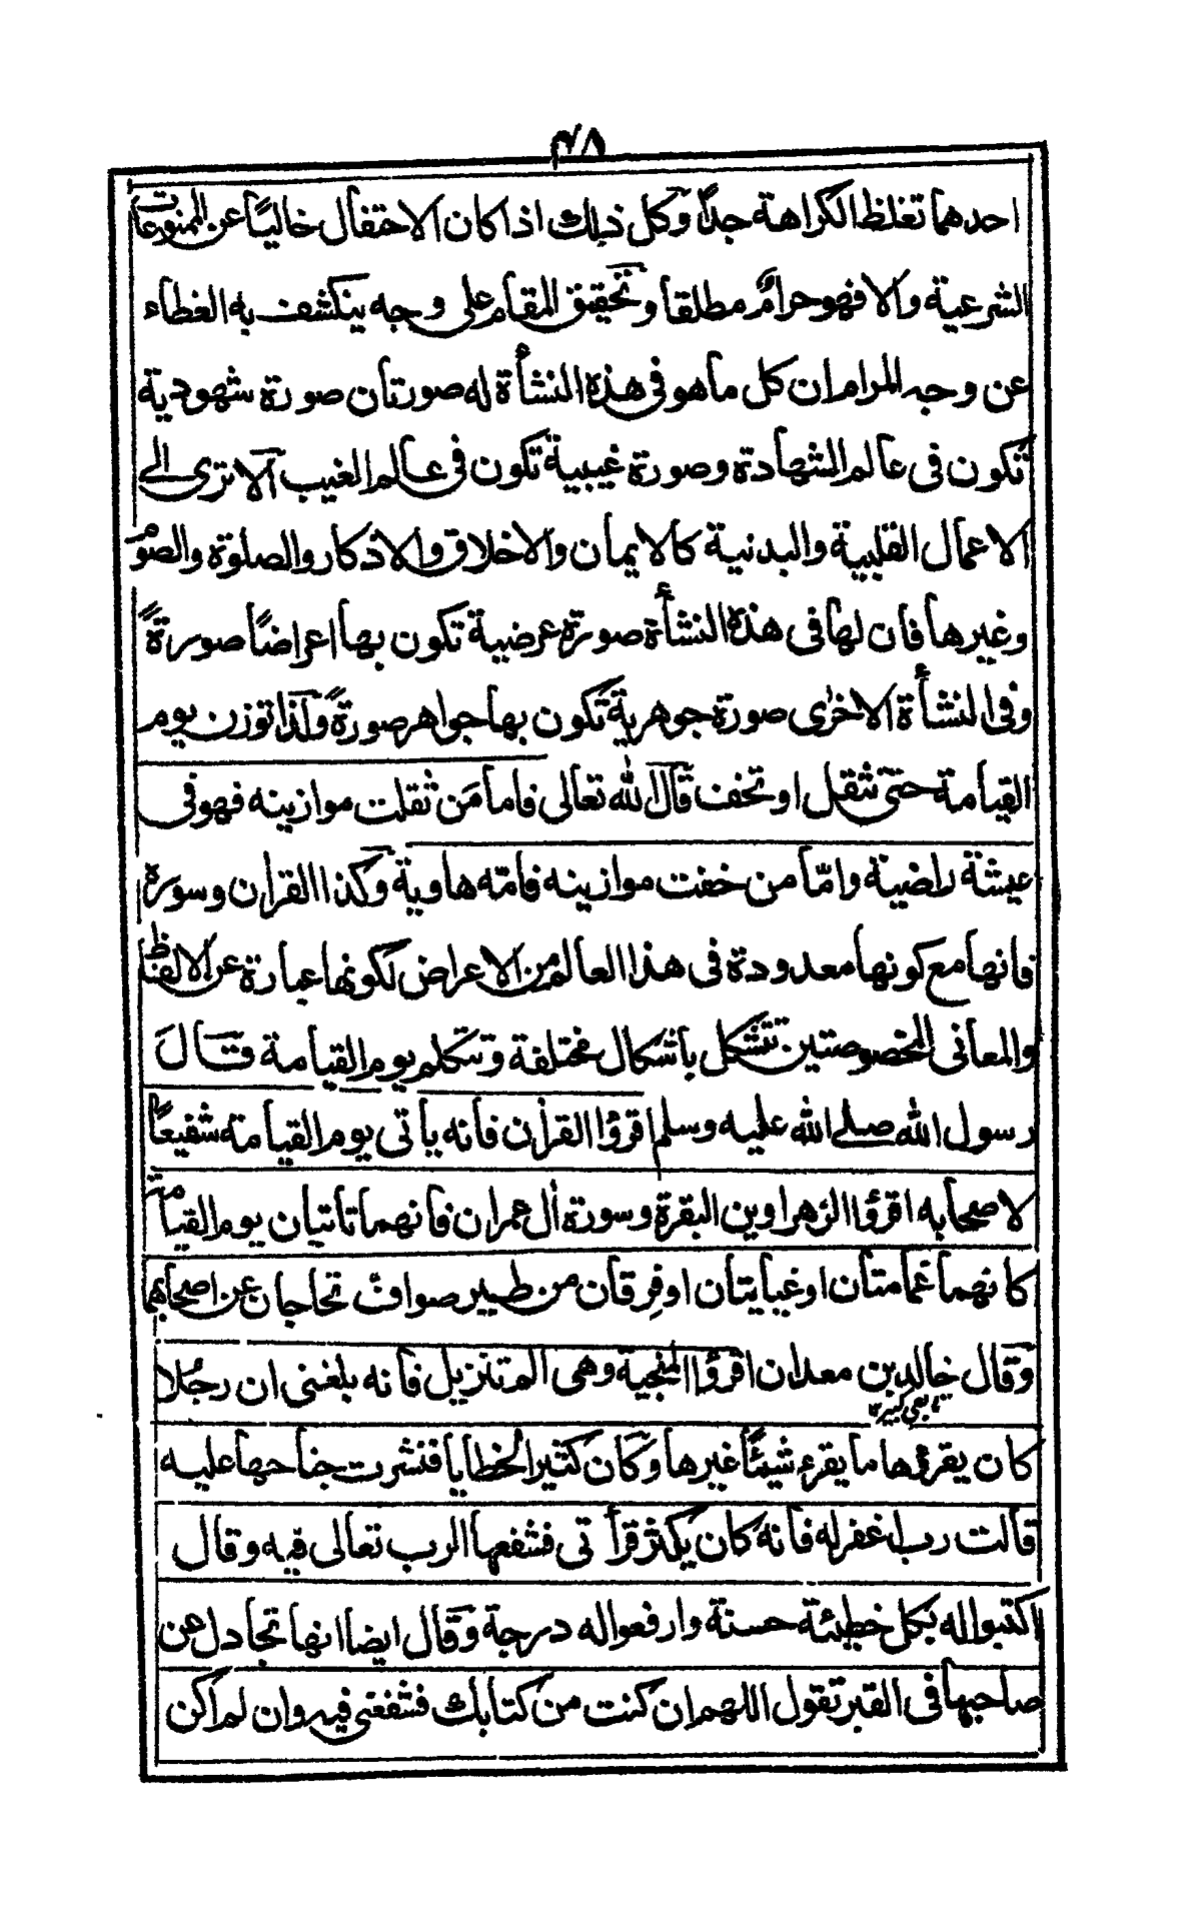 ۴۸
احدهما تغلظ الكراهة جداً وكل ذلك اذا كان الاحتفال خالياً عن الممنوعات
الشرعية والا فهو حرامٌ مطلقا وتحقيق المقام على وجه ينكشف به الغطاء
عن وجه المرام ان كل ما هو فى هذه النشأة له صورتان صورة شهودية
تكون فى عالم الشهادة وصورة غيبية تكون فى عالم الغيب الا ترى الى
الاعمال القلبية والبدنية كالايمان والاخلاق والاذكار والصلوة والصوم
وغيرها فان لها فى هذه النشأة صورة عرضية تكون بها اعراضاً صورةً
وفى النشأة الاخرى صورة جوهرية تكون بها جواهر صورةً ولذا توزن يوم
القيامة حتى تثقل او تخف قال الله تعالى فاما مَن ثقلت موازينه فهو فى
عيشة راضية وامّا من خفت موازينه فامّه هاوية وكذا القران وسوره
فانها مع كونها معدودة فى هذا العالم من الاعراض لكونها عبارة عن الالفاظ
والمعانى المخصوصتين تتشكل باشكال مختلفة وتتكلم يوم القيامة قال
رسول الله صلى الله عليه وسلم اقرؤا القران فانه يأتى يوم القيامة شفيعاً
لاصحابه اقرؤا الزهراوين البقرة وسورة ال عمران فانهما تاتيان يوم القيامة
كانهما غمامتان او غيايتان او فِرقان من طير صوافّ تحاجان عن اصحابهما
وقال خالد بن معدان اقرؤا المنجية وهى الم تنزيل فانه بلغنى ان رجُلا
كان يقرءها ما يقرء شيئاً غيرها وكان كثير الخطايا فنشرت جناحها عليه
قالت رب اغفرله فانه كان يكثر قرأتى فشفعها الرب تعالى فيه وقال
اكتبوا له بكل خطيئة حسنة وارفعوا له درجة وقال ايضا انها تجادل عن
صاحبها فى القبر تقول اللهم ان كنت من كتابك فشفعنى فيه وان لم اكن